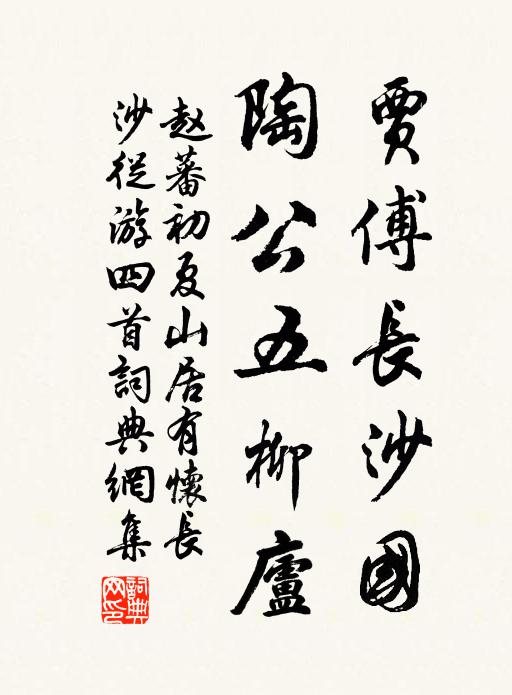 賈傅長沙國
陶公五柳廬
赵蕃初夏山居有懷長
沙從游四首詞典網集
詞典
网印